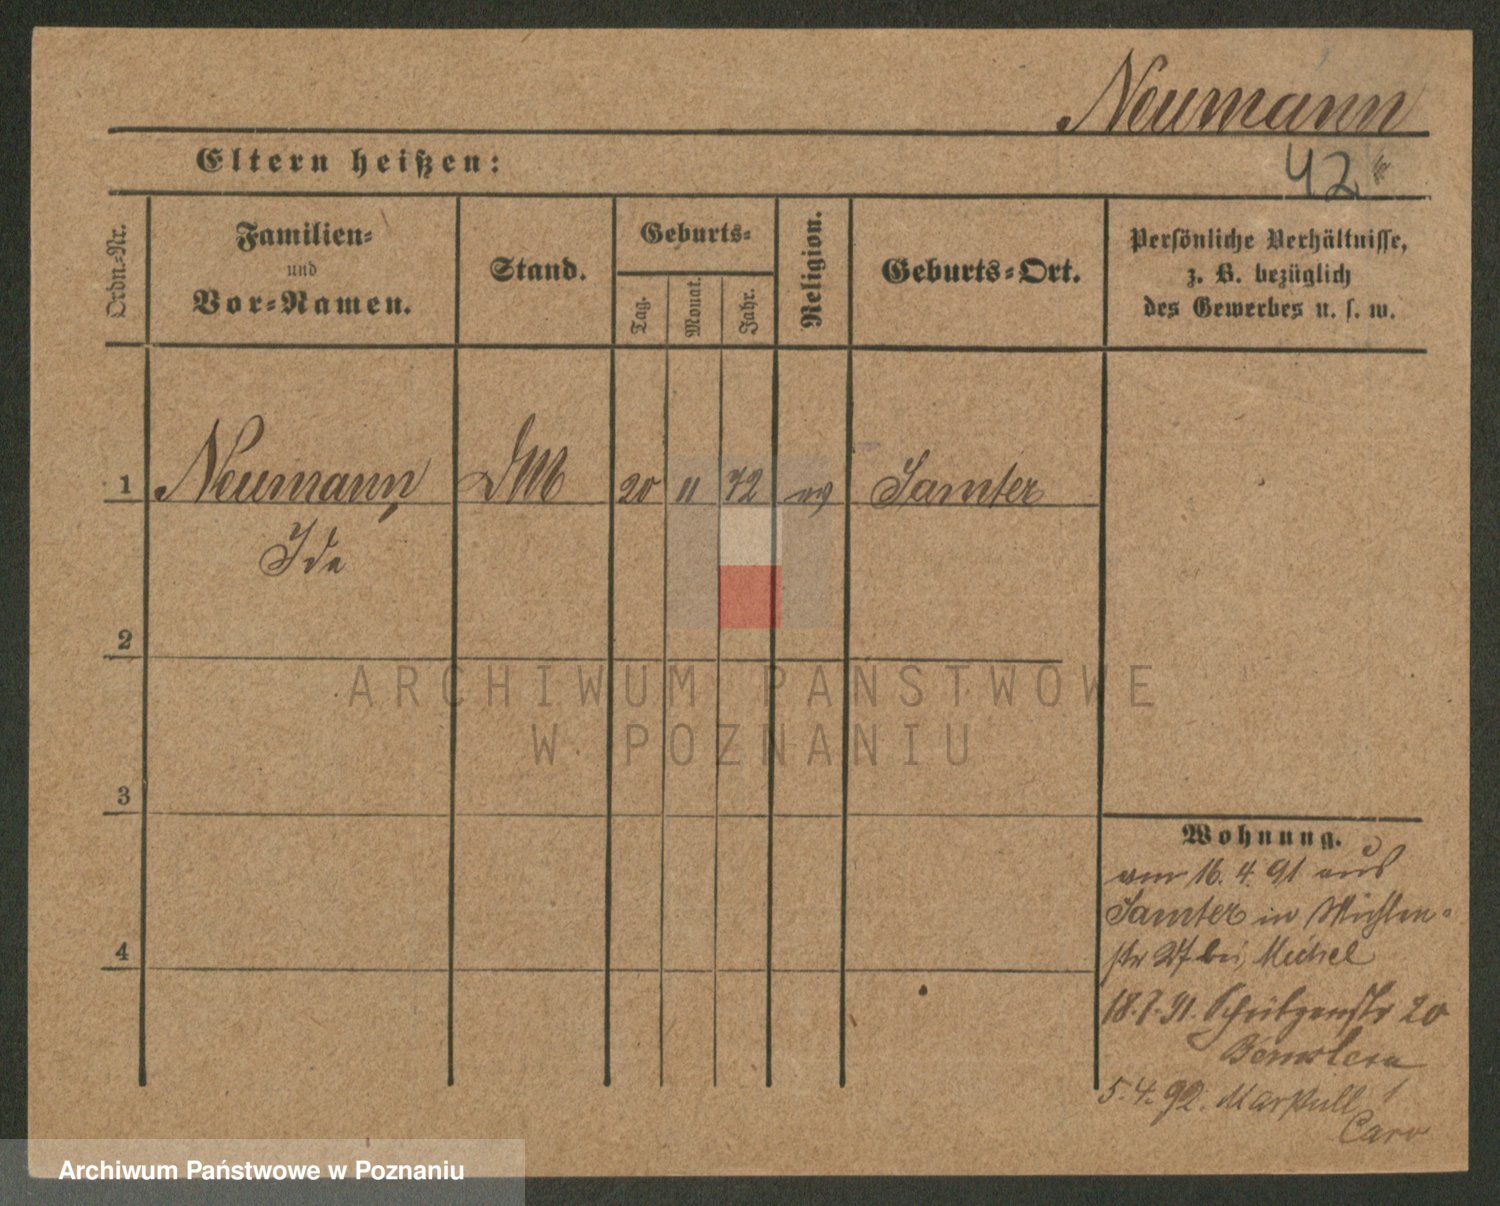 Neumann
42
Eltern heißen:
Ordn.-Nr.
Familien-
und
Vor-Namen.
Stand.
Geburts-
Tag.
Monat.
Jahr.
Religion.
Geburts-Ort.
Persönliche Verhältnisse,
z. B. bezüglich
des Gewerbes u. s. w.
1 Neumann DM 20 11 72 Samter
Ida
2
3
4
Wohnung.
am 16. 4. 91 aus
Samter in
str bei Michel
18.7.91. Schützenstr 20
5.4.92.
Caro
ARCHIWUM PAŃSTWOWE
W POZNANIU
Archiwum Państwowe w Poznaniu